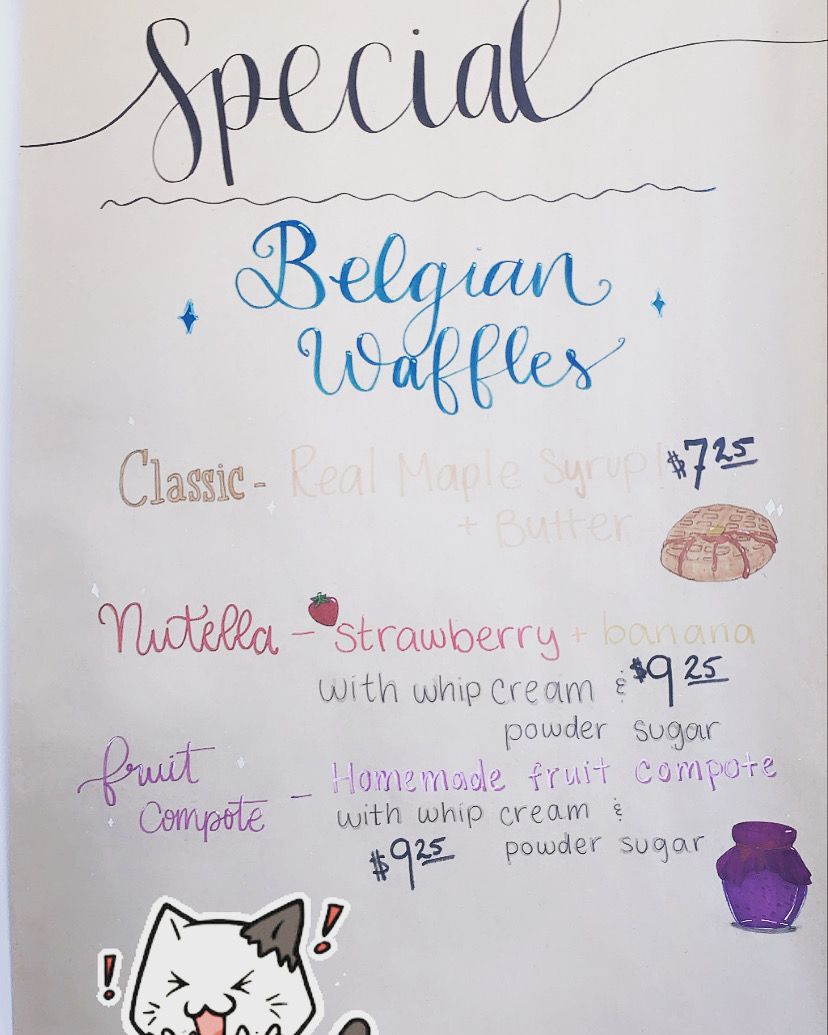 Special
Belgian
Waffles
Classic - Real Maple Syrup $7.25
+ Butter
Nutella - strawberry + banana
with whip cream & $9.25
powder sugar
fruit
compote - Homemade fruit compote
with whip cream &
$9.25 powder sugar
! !